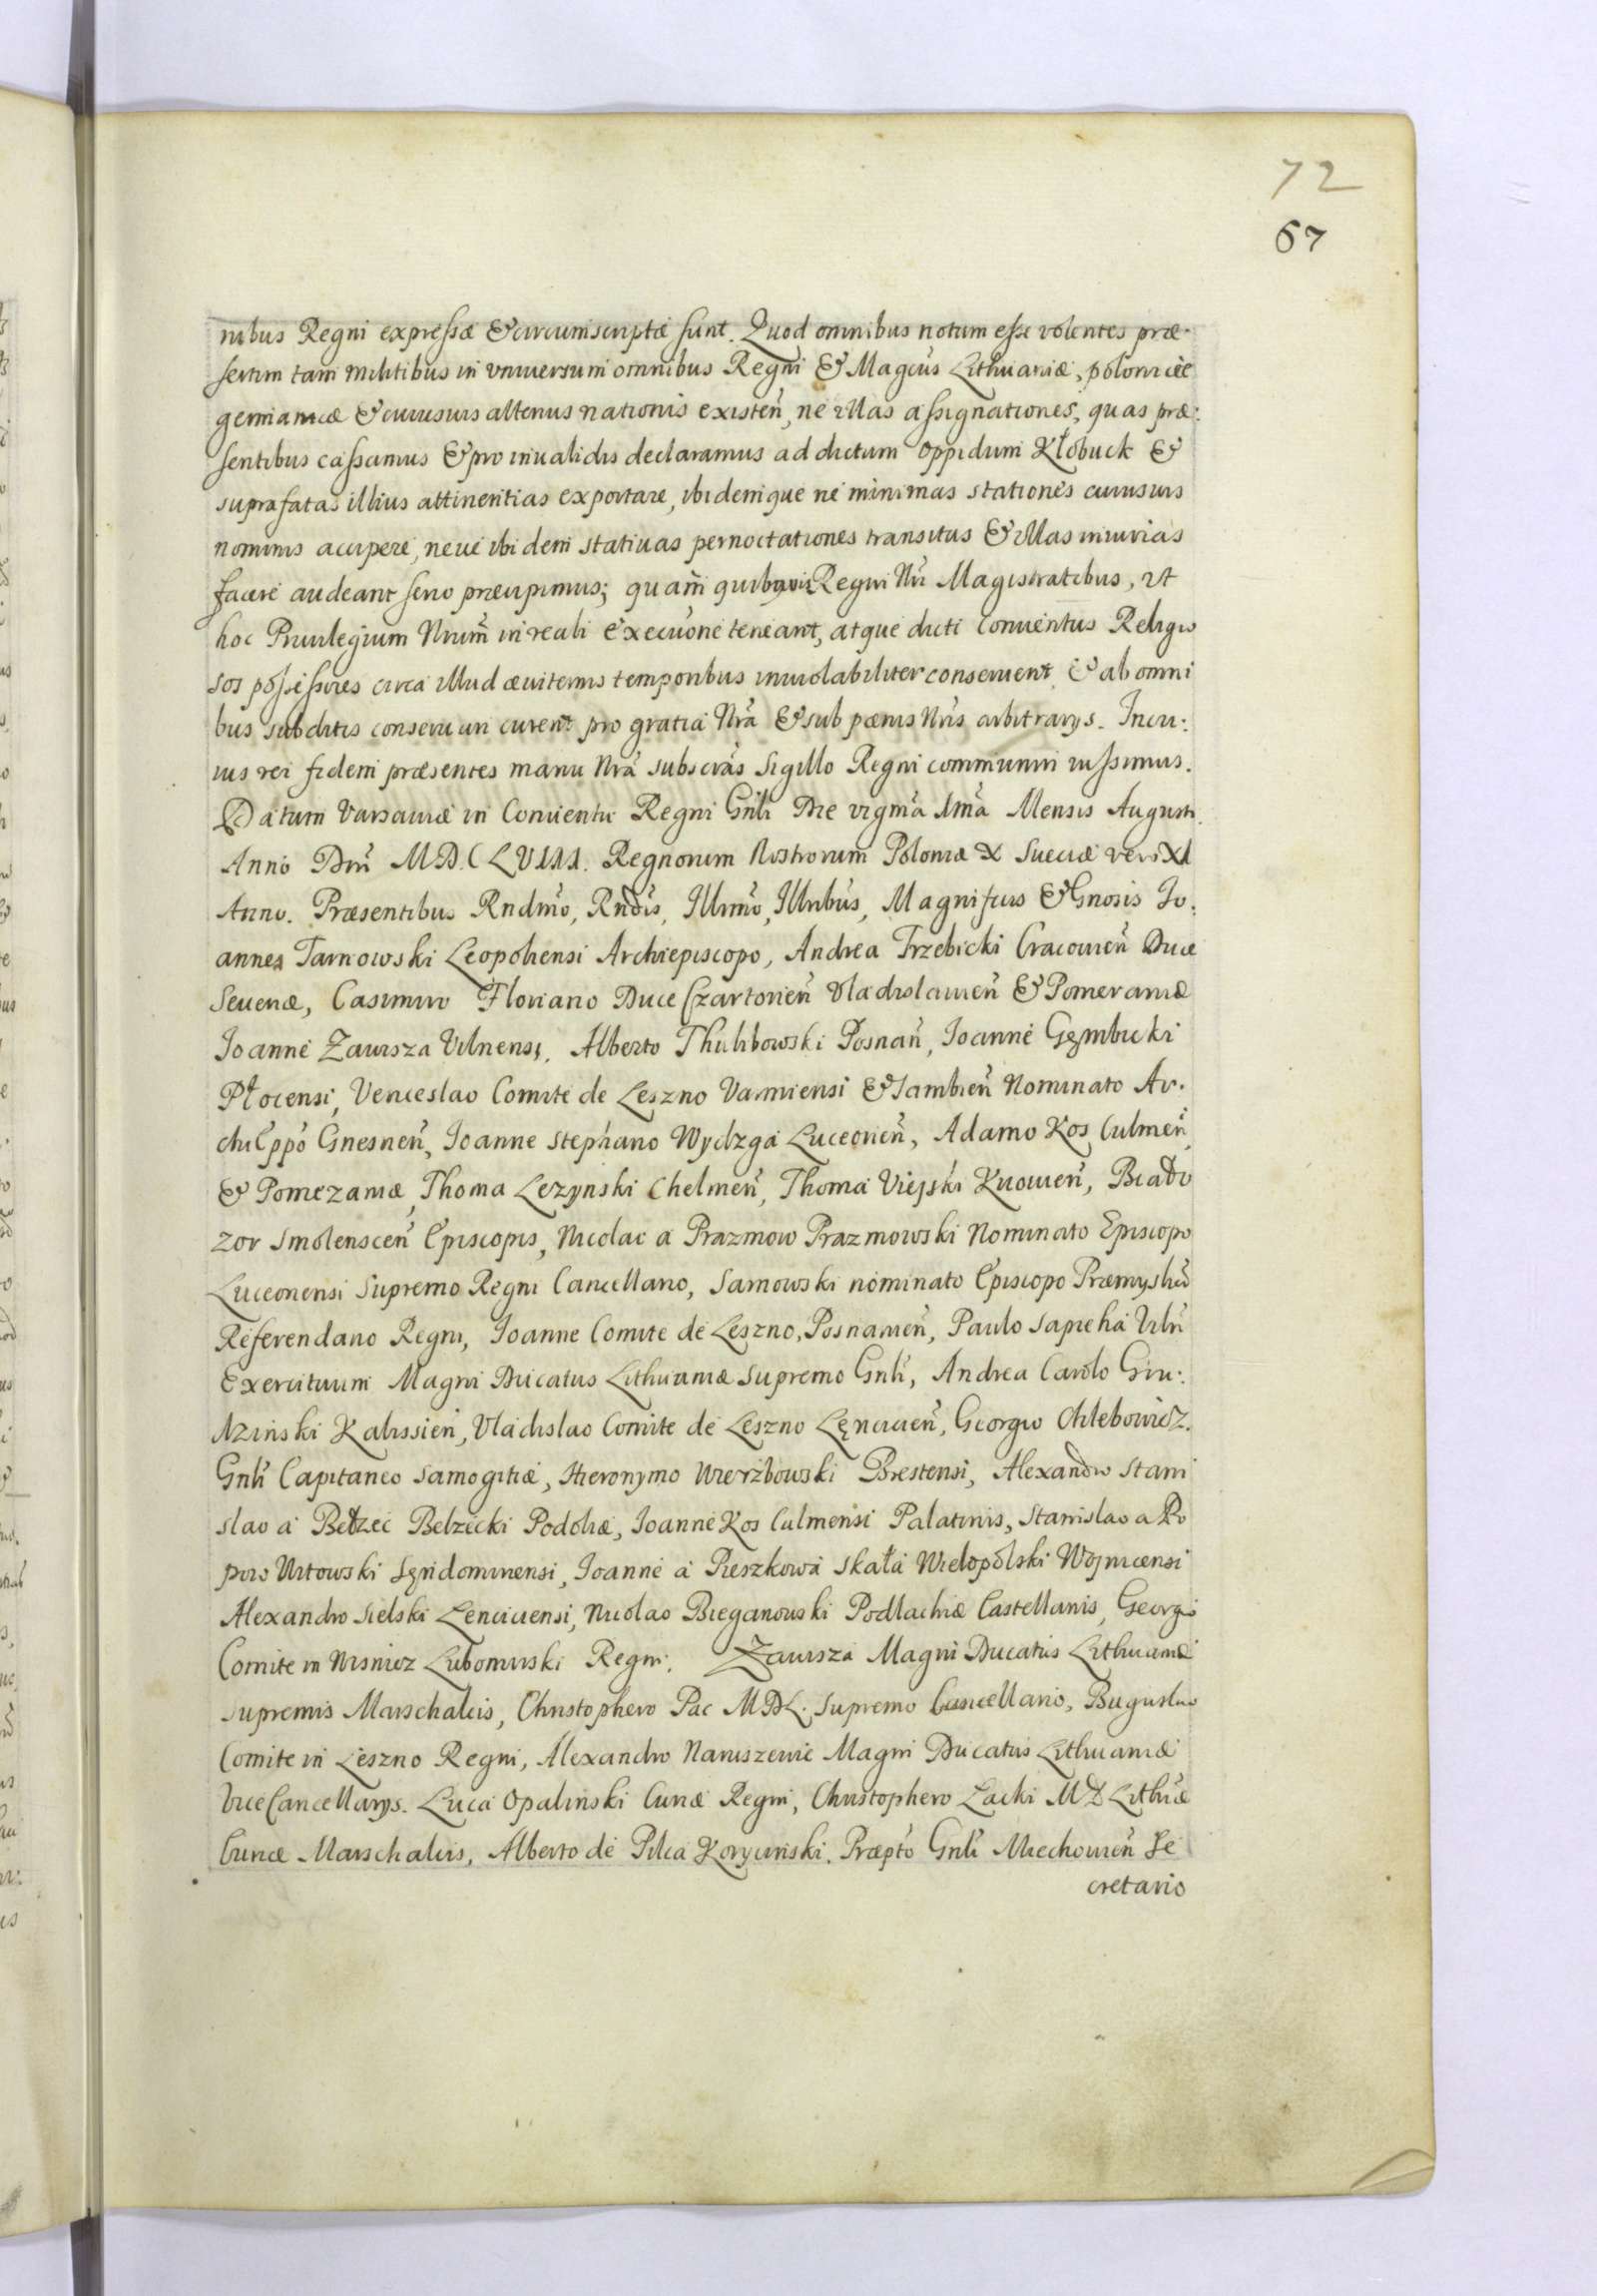 72
67
nibus Regni expressæ & circumscriptæ sunt. Quod omnibus notum esse volentes præ-
sertim tam militibus in vniuersum omnibus Regni & Magcũs Lithuaniæ, polonicæ
germanicæ & cuiusuis alterius nationis existeñ, ne illas assignationes, quas præ:
sentibus cassamus & pro inualidis declaramus ad dictum oppidum Kłobuck &
suprafatas illius attinentias exportare, ibidemque ne minimas stationes cuiusuis
nominis accipere, neue ibidem statiuas pernoctationes transitus & illas iniurias
facere audeant serio præcipimus; quam quibusuis Regni Nri Magistratibus, ut
hoc Priuilegium Nrum̃ in reali execuõne teneant, atque dicti Conuentus Religio
sos possessores circa illud æuiternis temporibus inuiolabiliter conseruent & ab omni
bus subditis conseruari curent pro gratia Nra & sub pænis Nris arbitrarys. In cu:
ius rei fidem præsentes manu Nrã subscrãs Sigillo Regni communiri iussimus.
Datum Varsauiæ in Conuentu Regni Gnli Die vigmã 1mã Mensis Augusti.
Anno Dni MD.CLVIII. Regnorum Nostrorum Poloniæ & Sueciæ vero XI
Anno. Præsentibus Rndmo, Rndis, Illmo, Illribus, Magnificis & Gnosis Jo:
annes Tarnowski Leopoliensi Archiepiscopo, Andrea Trzebicki Cracouieñ Duce
Seueriæ, Casimiro Floriano Duce Czartorieñ Vladislauieñ & Pomeraniæ
Joanne Zawisza Vilnensi, Alberto Tholibowski Posnañ, Joanne Gembicki
Płocensi, Venceslao Comite de Leszno Varmiensi & Sambieñ Nominato Ar-
chiEppo Gnesneñ, Joanne Stephano Wydzga Luceorieñ, Adamo Kos Culmeñ
& Pomezaniæ, Thoma Lezynski Chelmeñ, Thoma Viejski Kiiowieñ, Biało
zor Smolensceñ Episcopis, Nicolao a Prazmow Prazmowski Nominato Episcopo
Luceoriensi Supremo Regni Cancellario, Sarnowski nominato Episcopo Præmyslieñ
Referendario Regni, Joanne Comite de Leszno, Posnanieñ, Paulo Sapieha Vilñ
Exercituum Magni Ducatus Lithuaniæ Supremo Gnli, Andrea Carolo Gru:
dziński Kalissieñ, Vladislao Comite de Leszno Lęncicieñ, Georgio Chlebowicz.
Gnli Capitaneo Samogitiæ, Hieronymo Wierżbowski Brestensi, Alexandro Stani
slao a Bełzec Belzecki Podoliæ, Joanne Kos Culmensi Palatinis, Stanislao a Po
poro Witowski Sęndomiriensi, Joanne a Pieszkowa Skała Wielopolski Woynicensi
Alexandro Sielski Lenciciensi, Nicolao Bieganowski Podlachiæ Castellanis, Georgio
Comite in Wisnicz Lubomirski Regni. Zawisza Magni Ducatus Lithuaniæ
supremis Marschalcis, Christophero Pac MDL. Supremo Cancellario, Boguslao
Comite in Leszno Regni, Alexandro Naruszewic Magni Ducatus Lithuaniæ
ViceCancellarys. Luca Opaliński Curiæ Regni, Christophero Zacki MD Lithuæ
Curiæ Marschalcis, Alberto de Pilca Koryciński. Præpto Gnli Miechouieñ Se
cretario